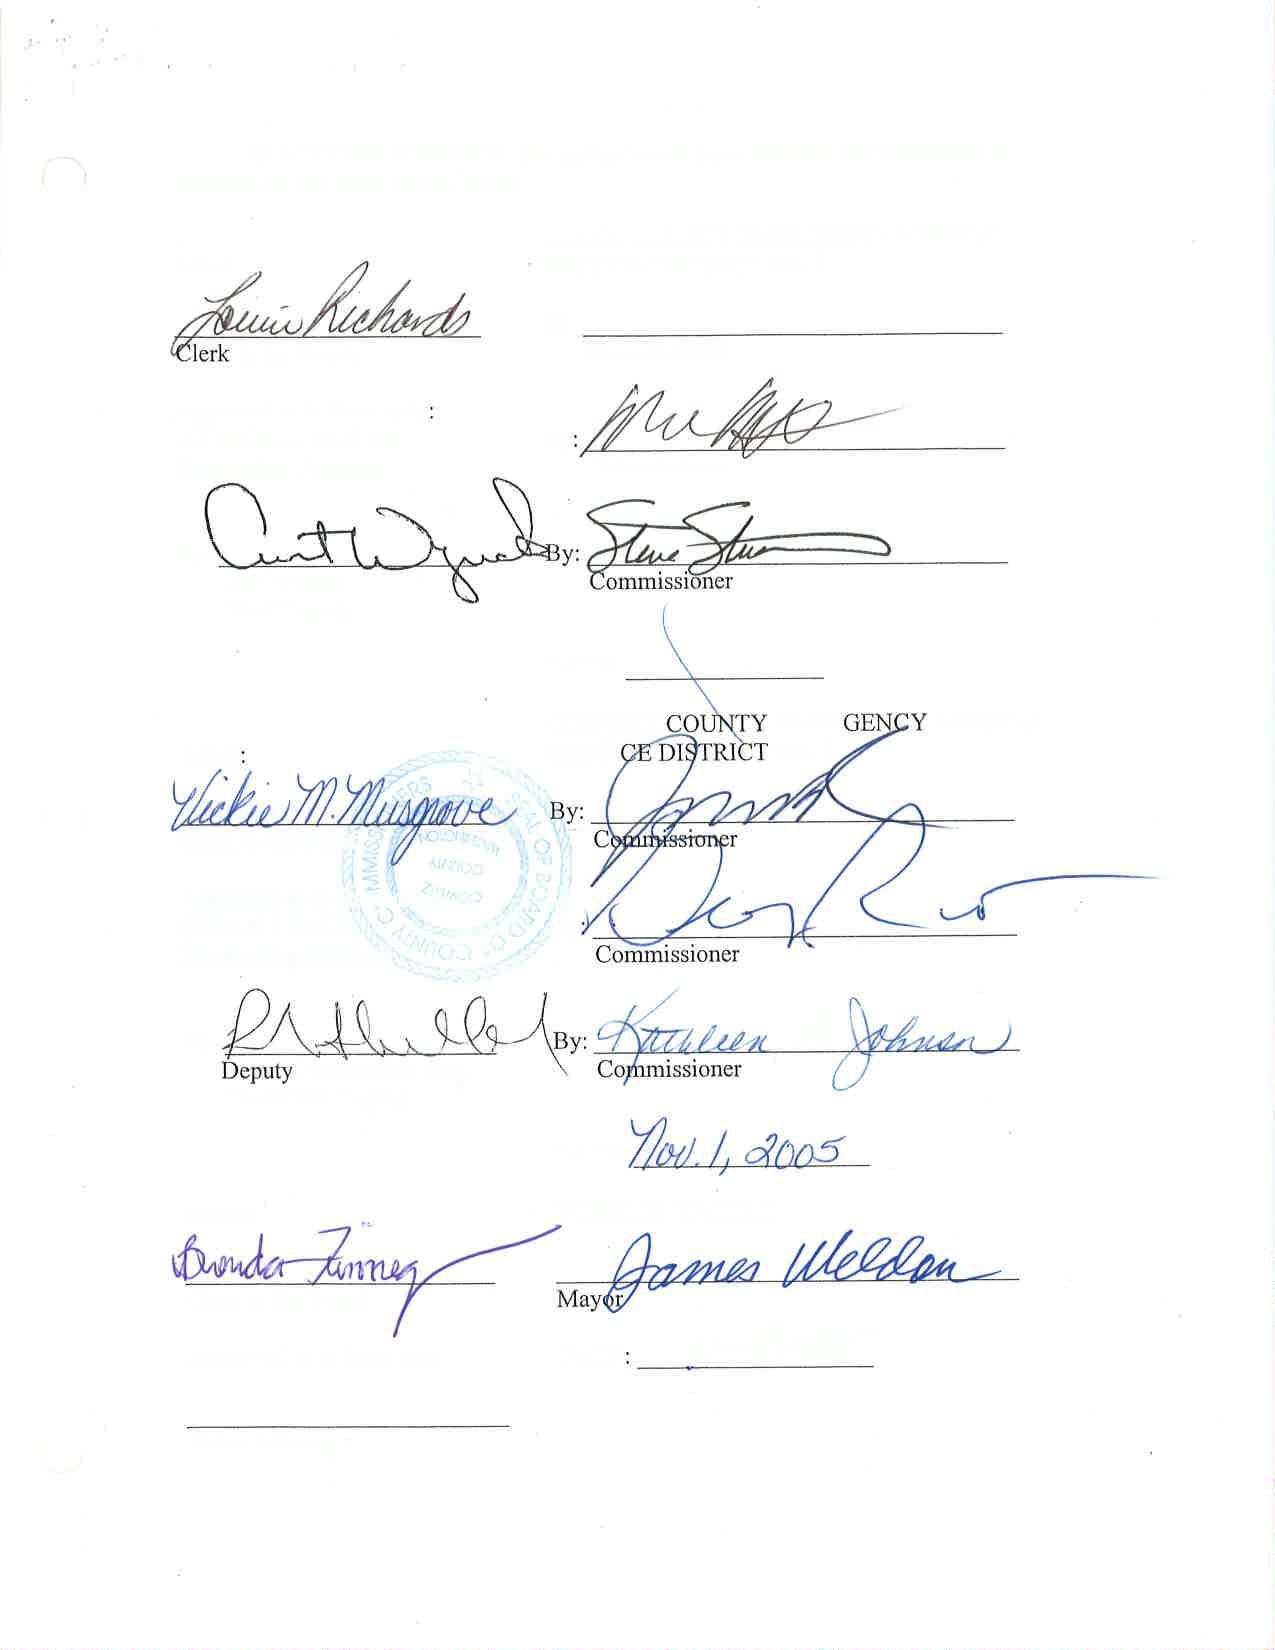 Richards
Clerk
:
:
Curt By: Steve
Commissioner
COUNTY GENCY
CE DISTRICT
:
Vickie M. Musgrove By:
Commissioner
SEAL OF BOARD OF COUNTY COMMISSIONERS
COWLITZ
COUNTY
WASHINGTON
:
Commissioner
By: Kathleen Johnson
Deputy Commissioner
Nov. 1, 2005
Brenda James Weldon
Mayor
: